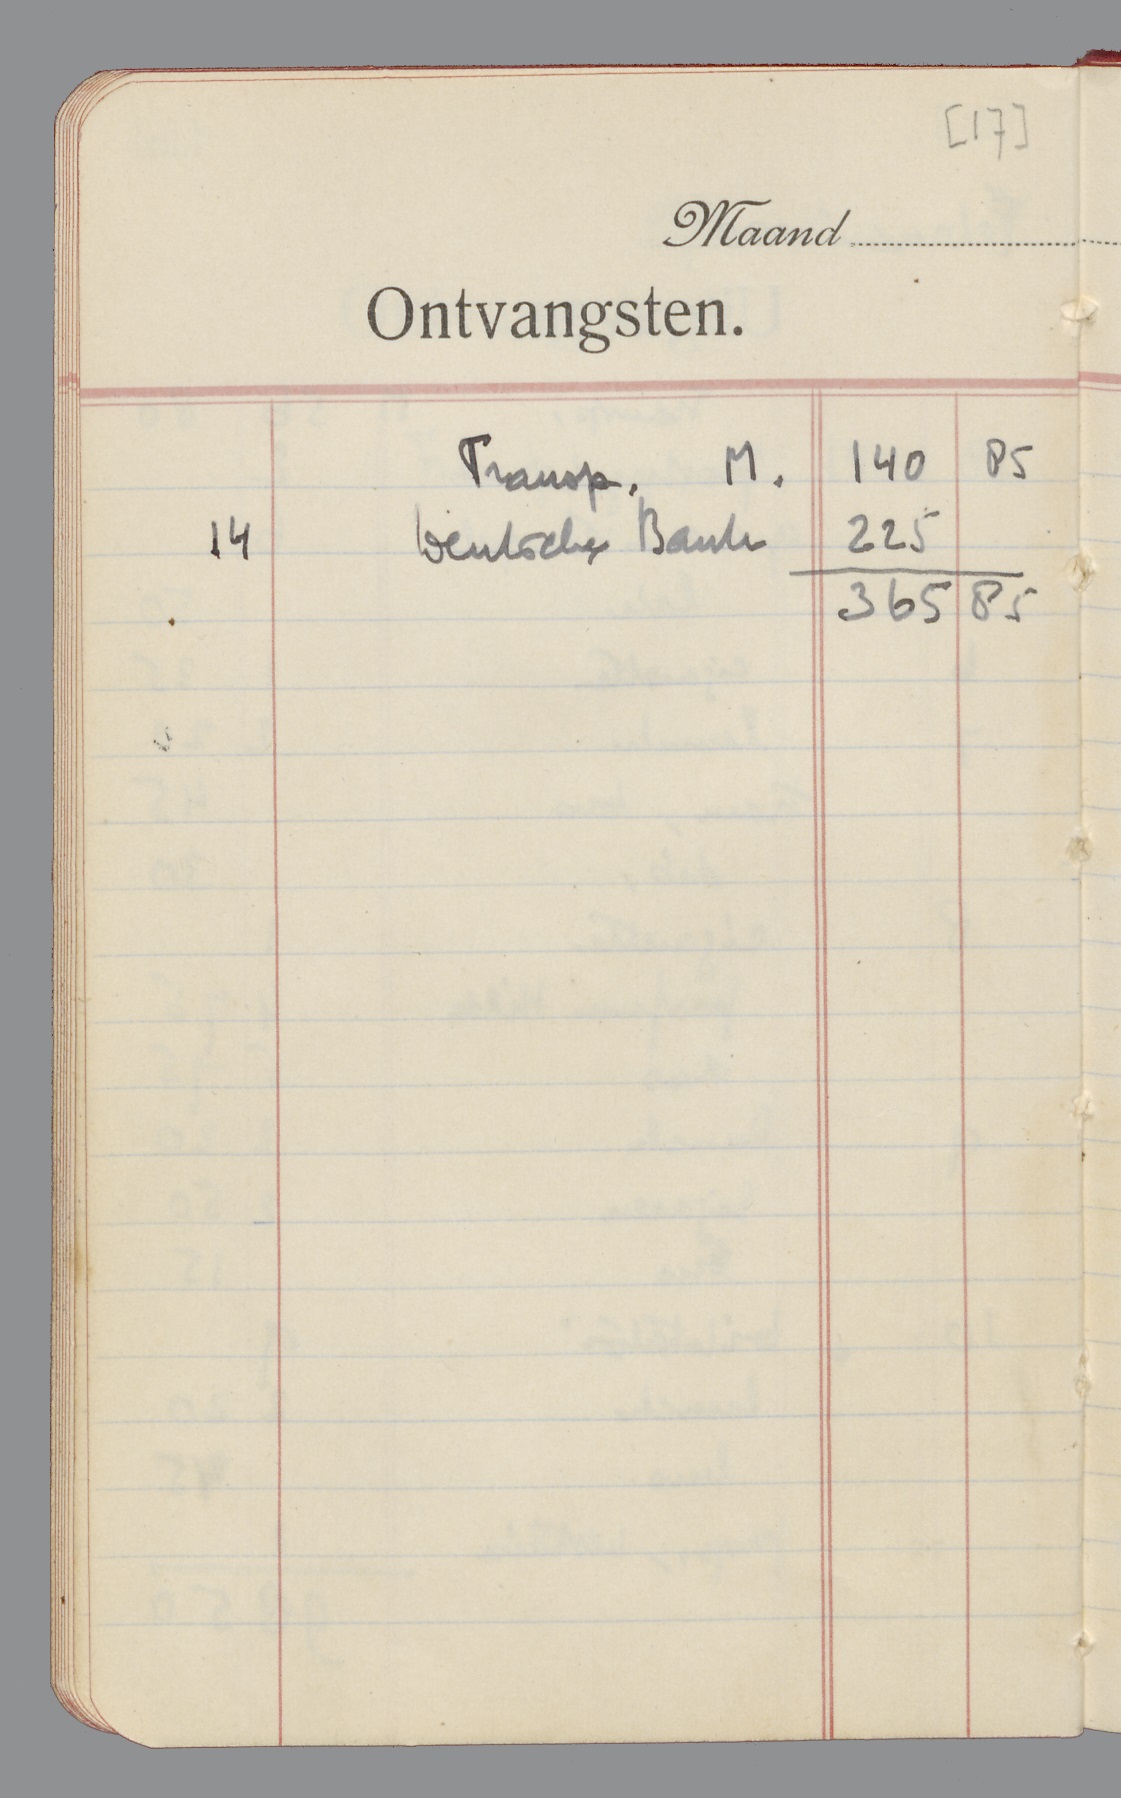 [17]
Maand
Ontvangsten.
Transp. M. 140 85
14 Deutsche Bank 225
365 85